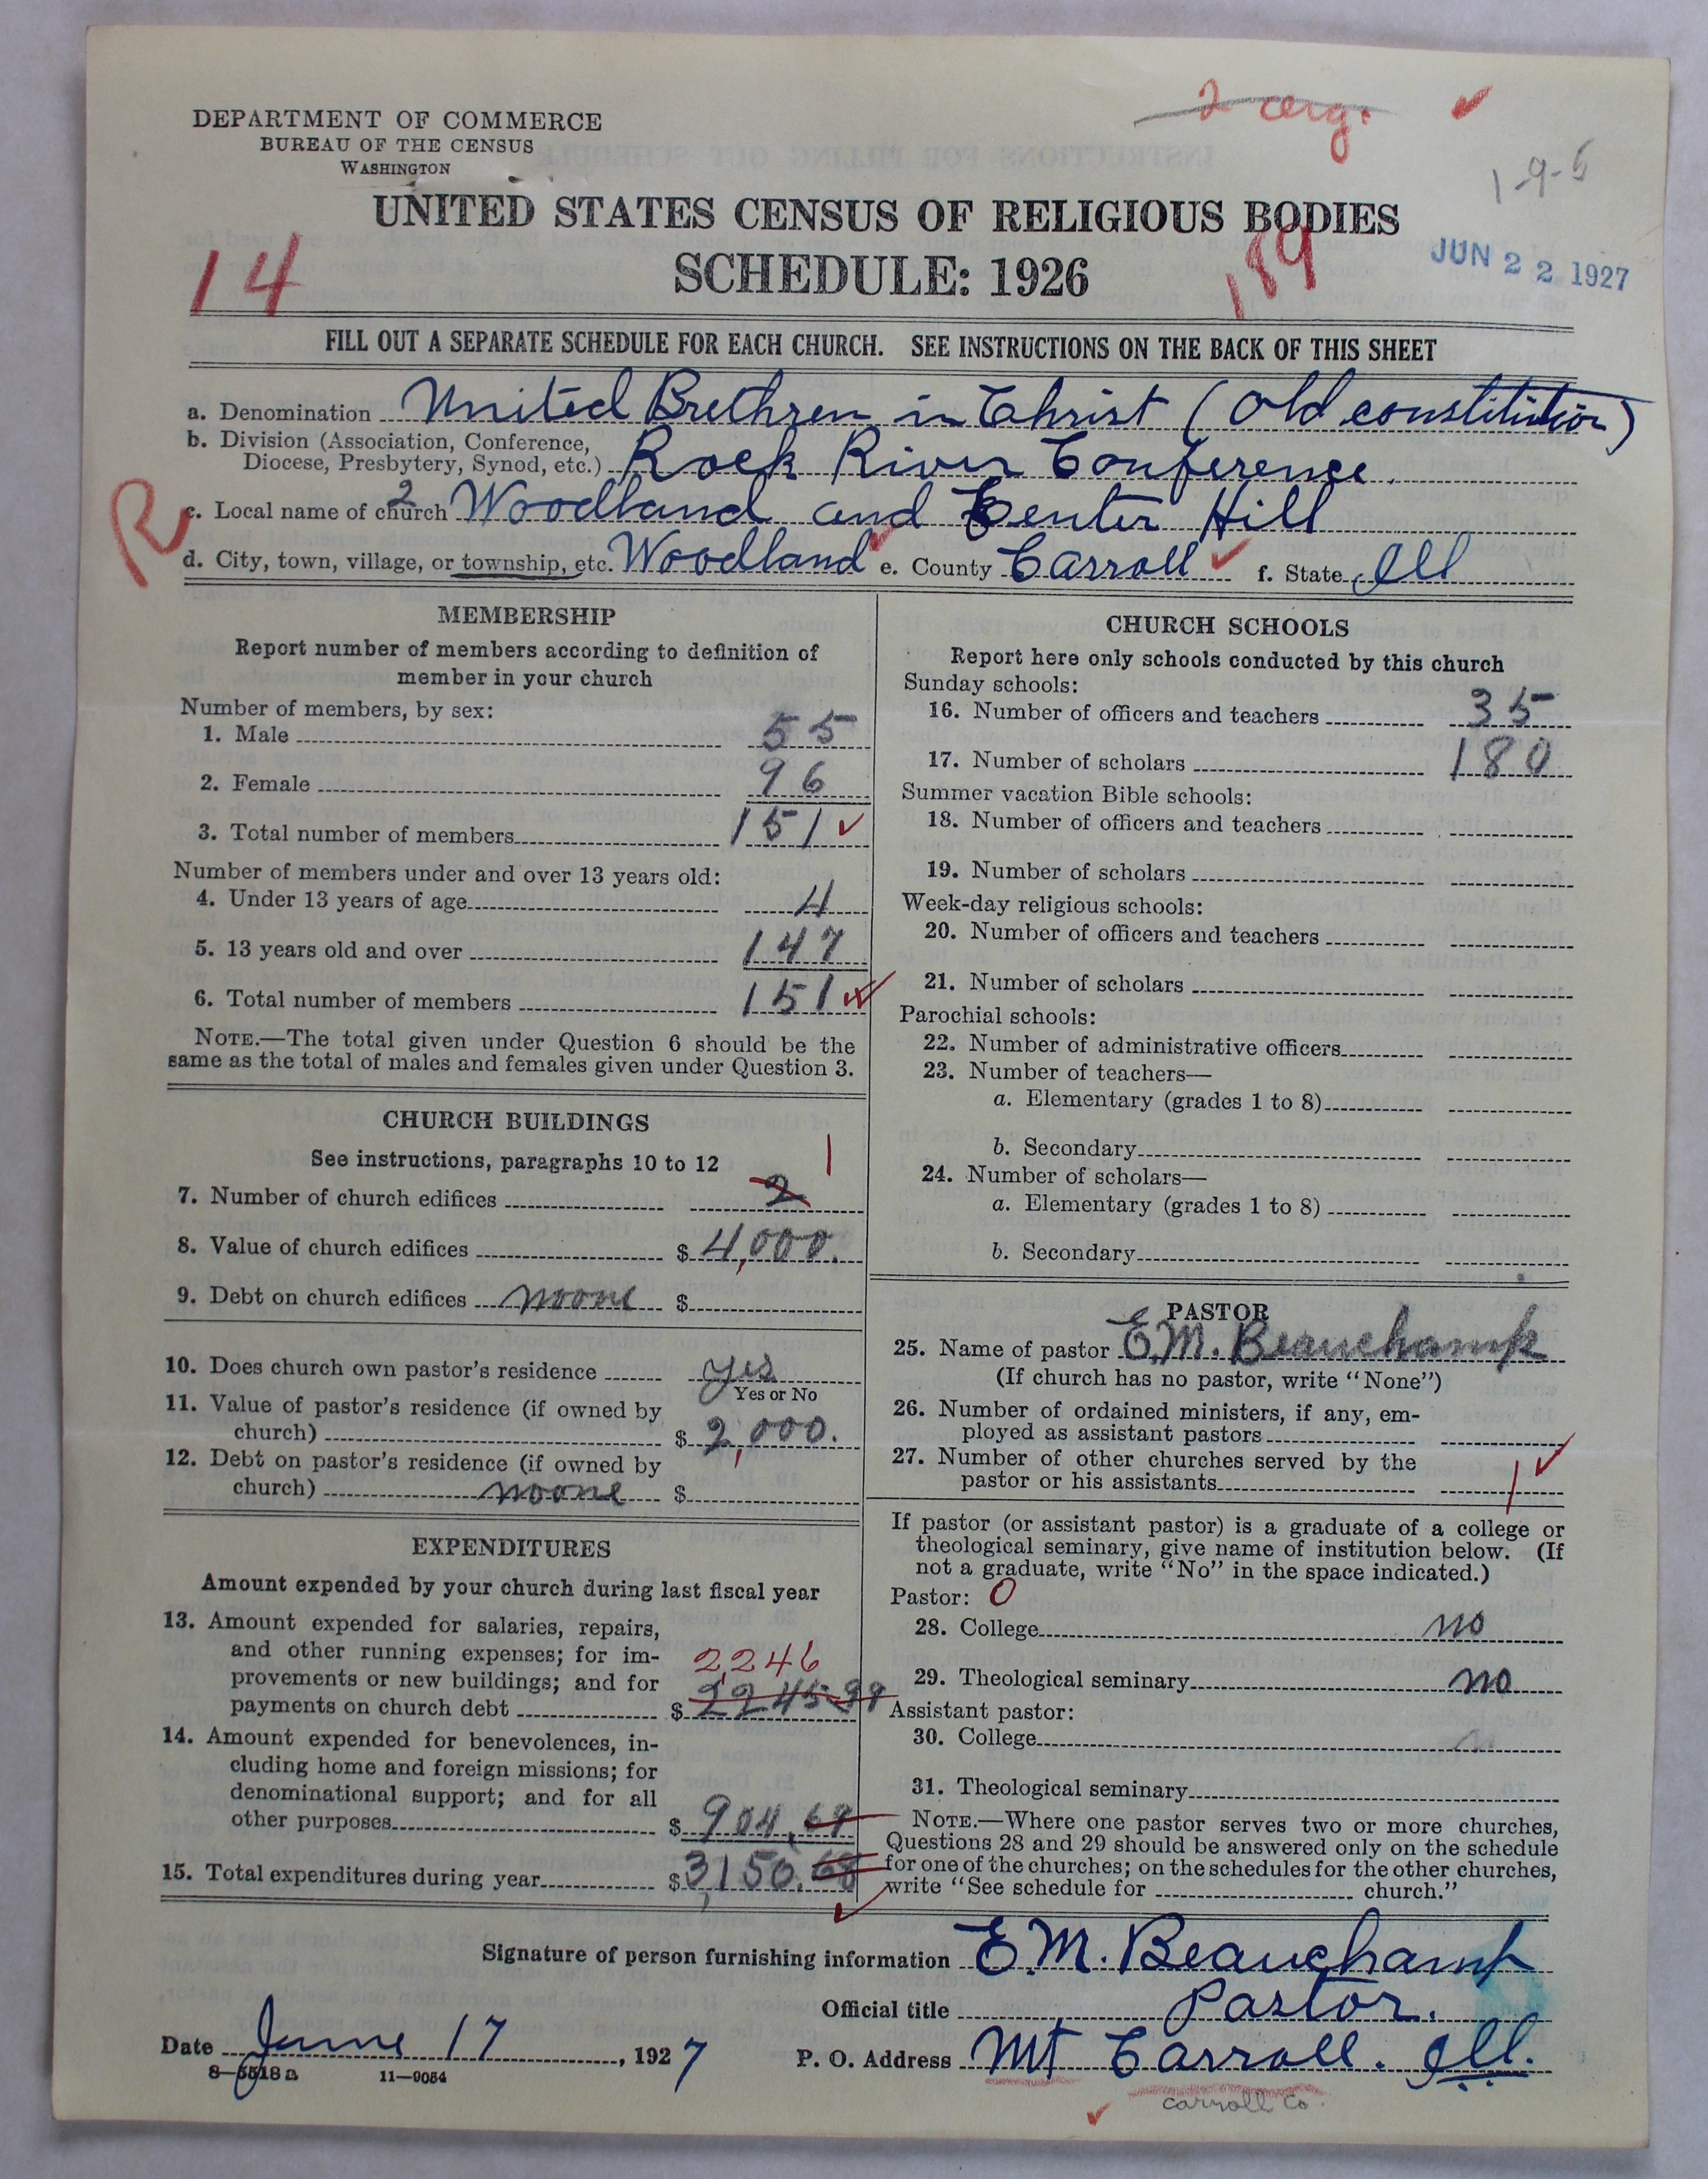 2 org.
DEPARTMENT OF COMMERCE
BUREAU OF THE CENSUS
WASHINGTON
1-9-5
UNITED STATES CENSUS OF RELIGIOUS BODIES
14
SCHEDULE: 1926
189
JUN 22 1927
FILL OUT A SEPARATE SCHEDULE FOR EACH CHURCH. SEE INSTRUCTIONS ON THE BACK OF THIS SHEET
a. Denomination United Brethren in Christ (Old constitution)
b. Division (Association, Conference,
Diocese, Presbytery, Synod, etc.) Rock River Conference.
R
2
c. Local name of church Woodland and Center Hill
d. City, town, village, or township, etc. Woodland e. County Carroll f. State Ill
MEMBERSHIP
Report number of members according to definition of
member in your church
Number of members, by sex:
1. Male 55
2. Female 96
3. Total number of members 151
Number of members under and over 13 years old:
4. Under 13 years of age 4
5. 13 years old and over 147
6. Total number of members 151
NOTE.—The total given under Question 6 should be the
same as the total of males and females given under Question 3.
CHURCH BUILDINGS
See instructions, paragraphs 10 to 12
1
7. Number of church edifices 2
8. Value of church edifices $ 4,000.
9. Debt on church edifices noone $
10. Does church own pastor's residence yes
Yes or No
11. Value of pastor's residence (if owned by
church) $ 2,000.
12. Debt on pastor's residence (if owned by
church) noone $
EXPENDITURES
Amount expended by your church during last fiscal year
13. Amount expended for salaries, repairs,
and other running expenses; for im-
provements or new buildings; and for 2,246
payments on church debt $ 2245.99
14. Amount expended for benevolences, in-
cluding home and foreign missions; for
denominational support; and for all
other purposes $ 904.69
15. Total expenditures during year $ 3,150.68
CHURCH SCHOOLS
Report here only schools conducted by this church
Sunday schools:
16. Number of officers and teachers 35
17. Number of scholars 180
Summer vacation Bible schools:
18. Number of officers and teachers
19. Number of scholars
Week-day religious schools:
20. Number of officers and teachers
21. Number of scholars
Parochial schools:
22. Number of administrative officers
23. Number of teachers—
a. Elementary (grades 1 to 8)
b. Secondary
24. Number of scholars—
a. Elementary (grades 1 to 8)
b. Secondary
PASTOR
25. Name of pastor E.M. Beauchamp
(If church has no pastor, write "None")
26. Number of ordained ministers, if any, em-
ployed as assistant pastors
27. Number of other churches served by the
pastor or his assistants 1
If pastor (or assistant pastor) is a graduate of a college or
theological seminary, give name of institution below. (If
not a graduate, write "No" in the space indicated.)
Pastor: 0
28. College no
29. Theological seminary no
Assistant pastor:
30. College
31. Theological seminary
NOTE.—Where one pastor serves two or more churches,
Questions 28 and 29 should be answered only on the schedule
for one of the churches; on the schedules for the other churches,
write "See schedule for church."
Signature of person furnishing information E.M. Beauchamp
Official title Pastor.
Date June 17, 1927
P. O. Address Mt Carroll. Ill.
8-5518a 11-9054
Carroll Co.